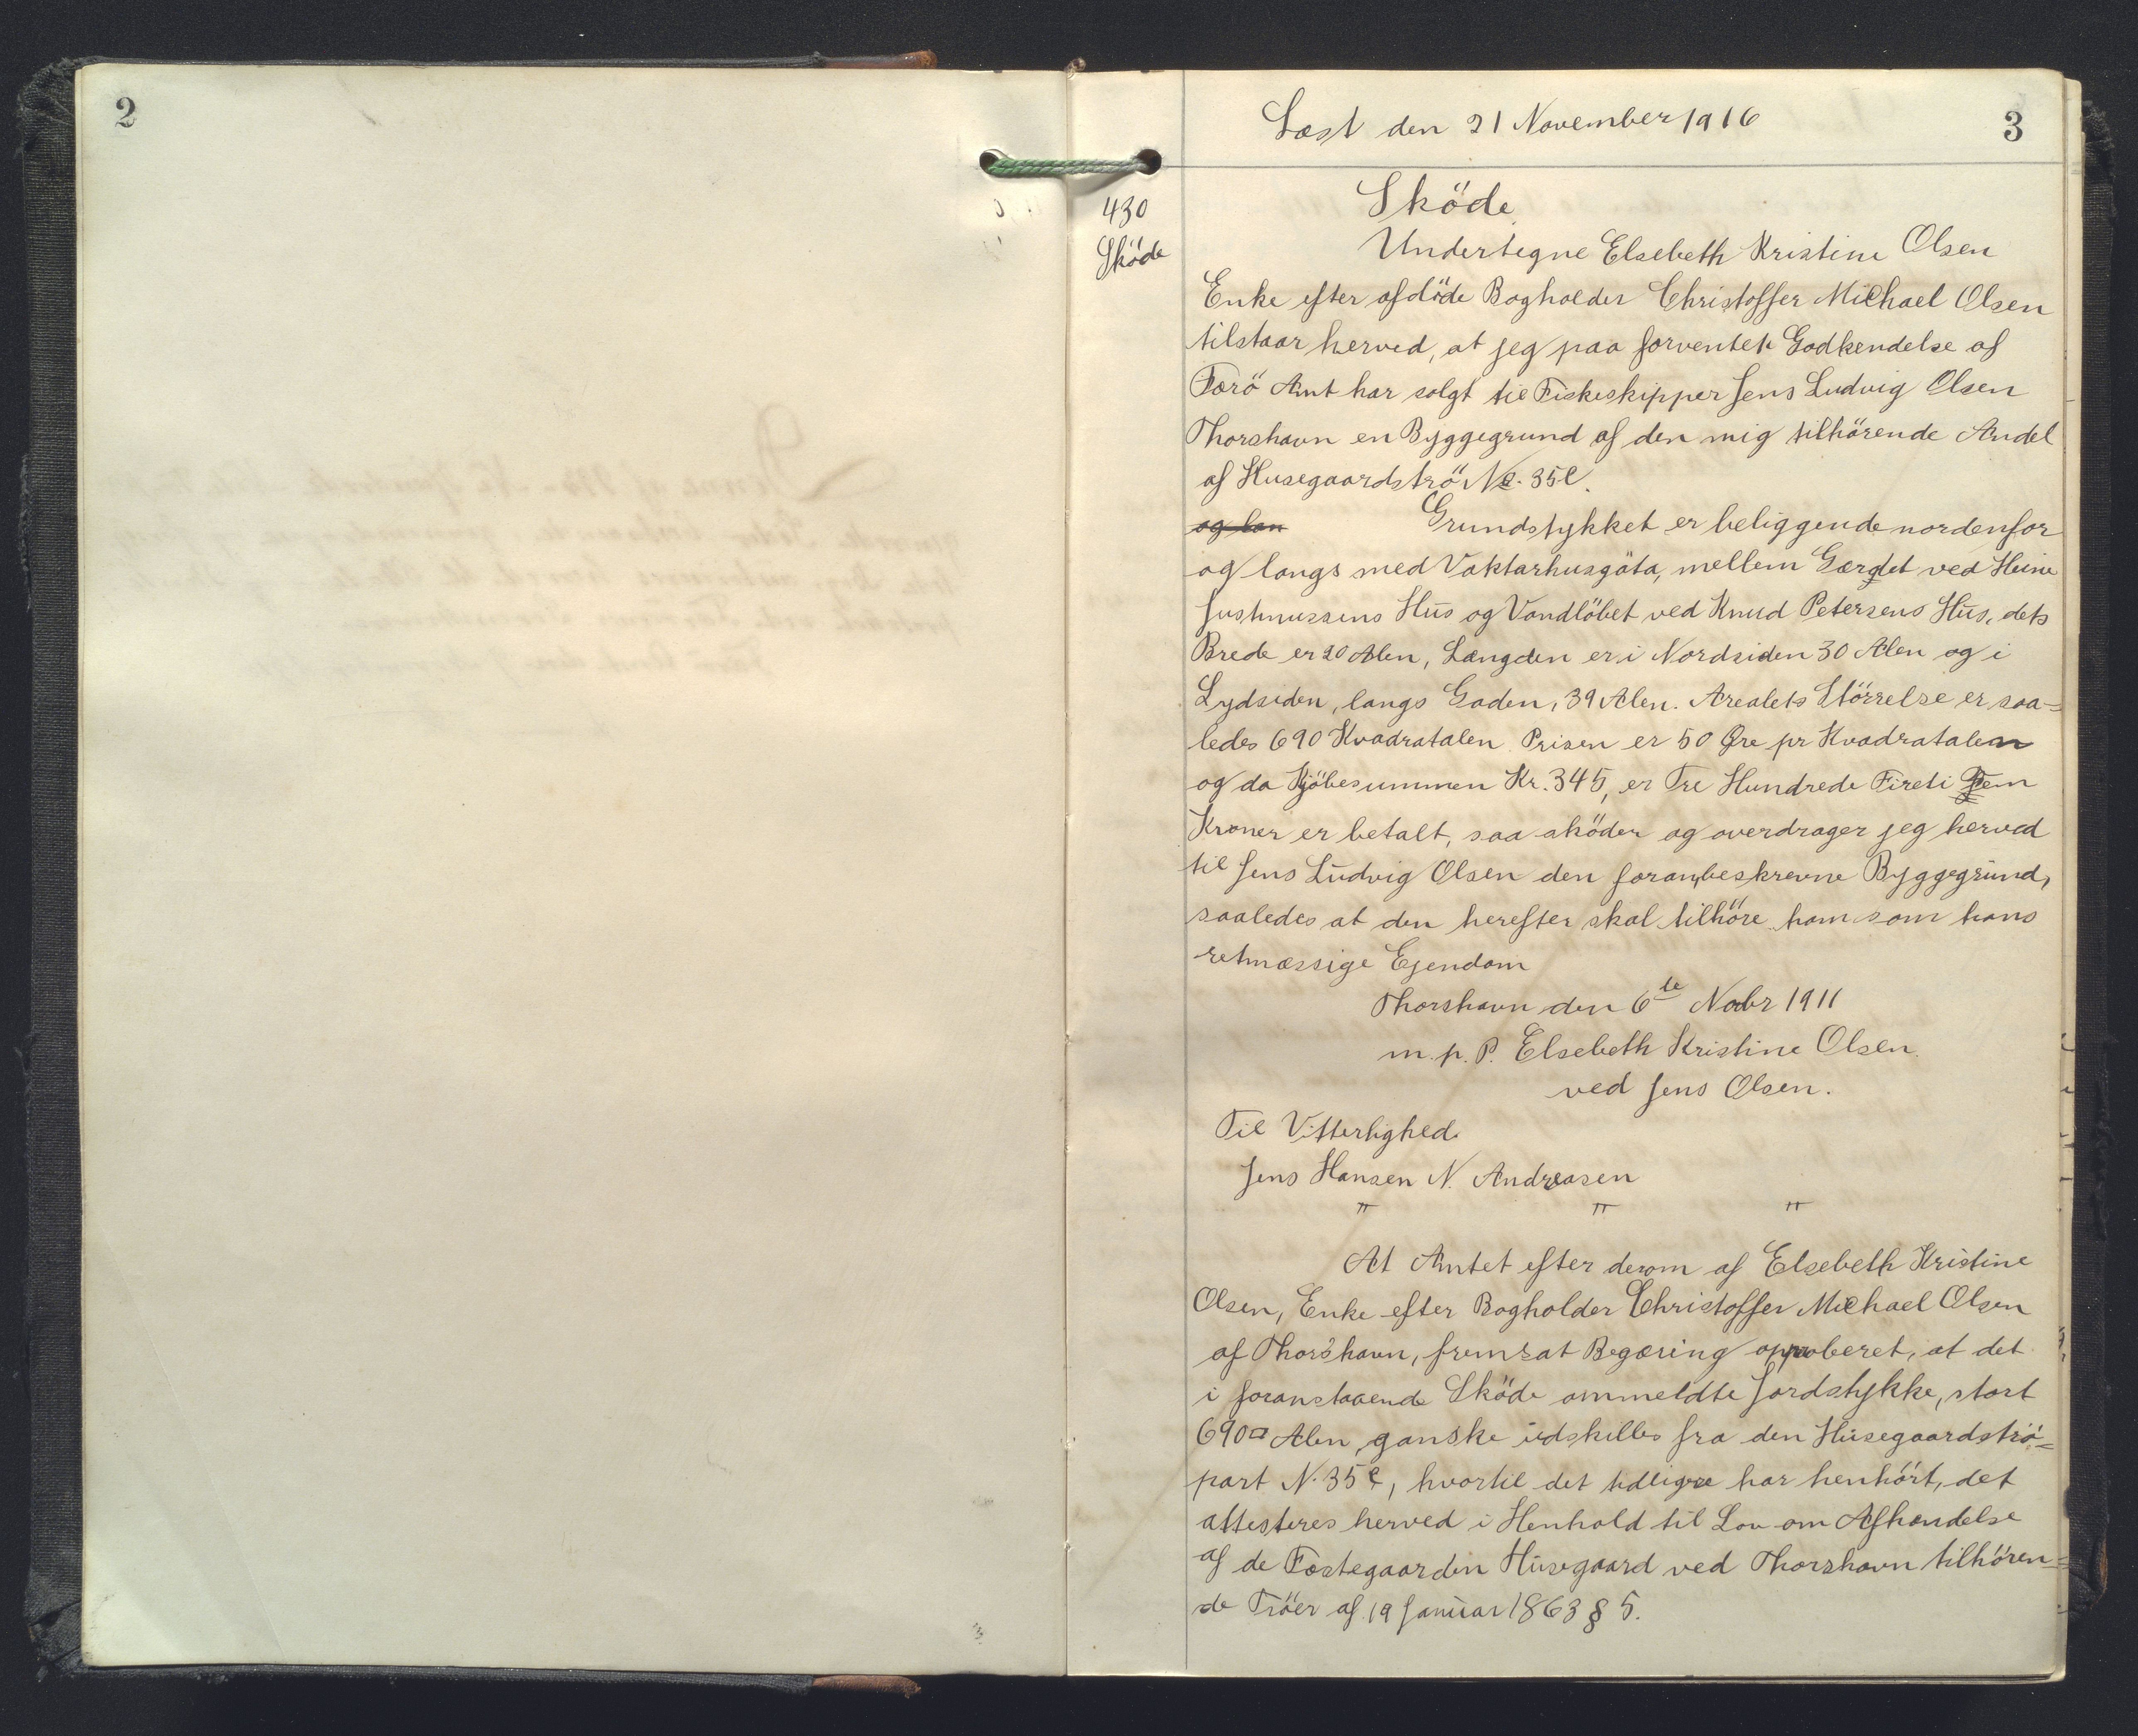 2
Læst den 21 November 1916
3
430
Sköde
Sköde
Undertegne Elsebeth Kristine Olsen
Enke efter afdöde Bogholder Christoffer Michael Olsen
tilstaar herved, at jeg paa forventet Godkendelse af
Færö Amt har solgt til Fiskeskipper Jens Ludvig Olsen
Thorshavn en Byggegrund af den mig tilhörende Andel
af Husegaardströ No. 35e.
og lan Grundstykket er beliggende nordenfor
og langs med Vaktarhusgöta, mellem Gærdet ved Heine
Justinussens Hus og Vandlöbet ved Knud Petersens Hus, dets
Brede er 20 Alen, Længden er i Nordsiden 30 Alen og i
Sydsiden, langs Gaden, 39 Alen. Arealets Störrelse er saa=
ledes 690 Kvadratalen Prisen er 50 Øre pr Kvadratalen
og da Kjöbesummen Kr. 345, er Tre Hundrede Fireti Fem
Kroner er betalt, saa sköder og overdrager jeg herved
til Jens Ludvig Olsen den foranbeskrevne Byggegrund,
saaledes at den herefter skal tilhöre ham som hans
retmæssige Ejendom
Thorshavn den 6te Novbr 1911
m. p. P. Elsebeth Kristine Olsen
ved Jens Olsen.
Til Vitterlighed
Jens Hansen N. Andreasen
" " "
At Amtet efter derom af Elsebeth Kristine
Olsen, Enke efter Bogholder Christoffer Michael Olsen
af Thorshavn, fremsat Begæring approberet, at det
i foranstaaende Sköde ommeldte Jordstykke, stort
690□ Alen ganske udskilles fra den Husegaardströ=
part N. 35e, hvortil det tidligere har henhört, det
attesteres herved i Henhold til Lov om Afhændelse
af de Fæstegaarden Husegaard ved Thorshavn tilhören=
de Tröer af 19 Januar 1863 § 5.